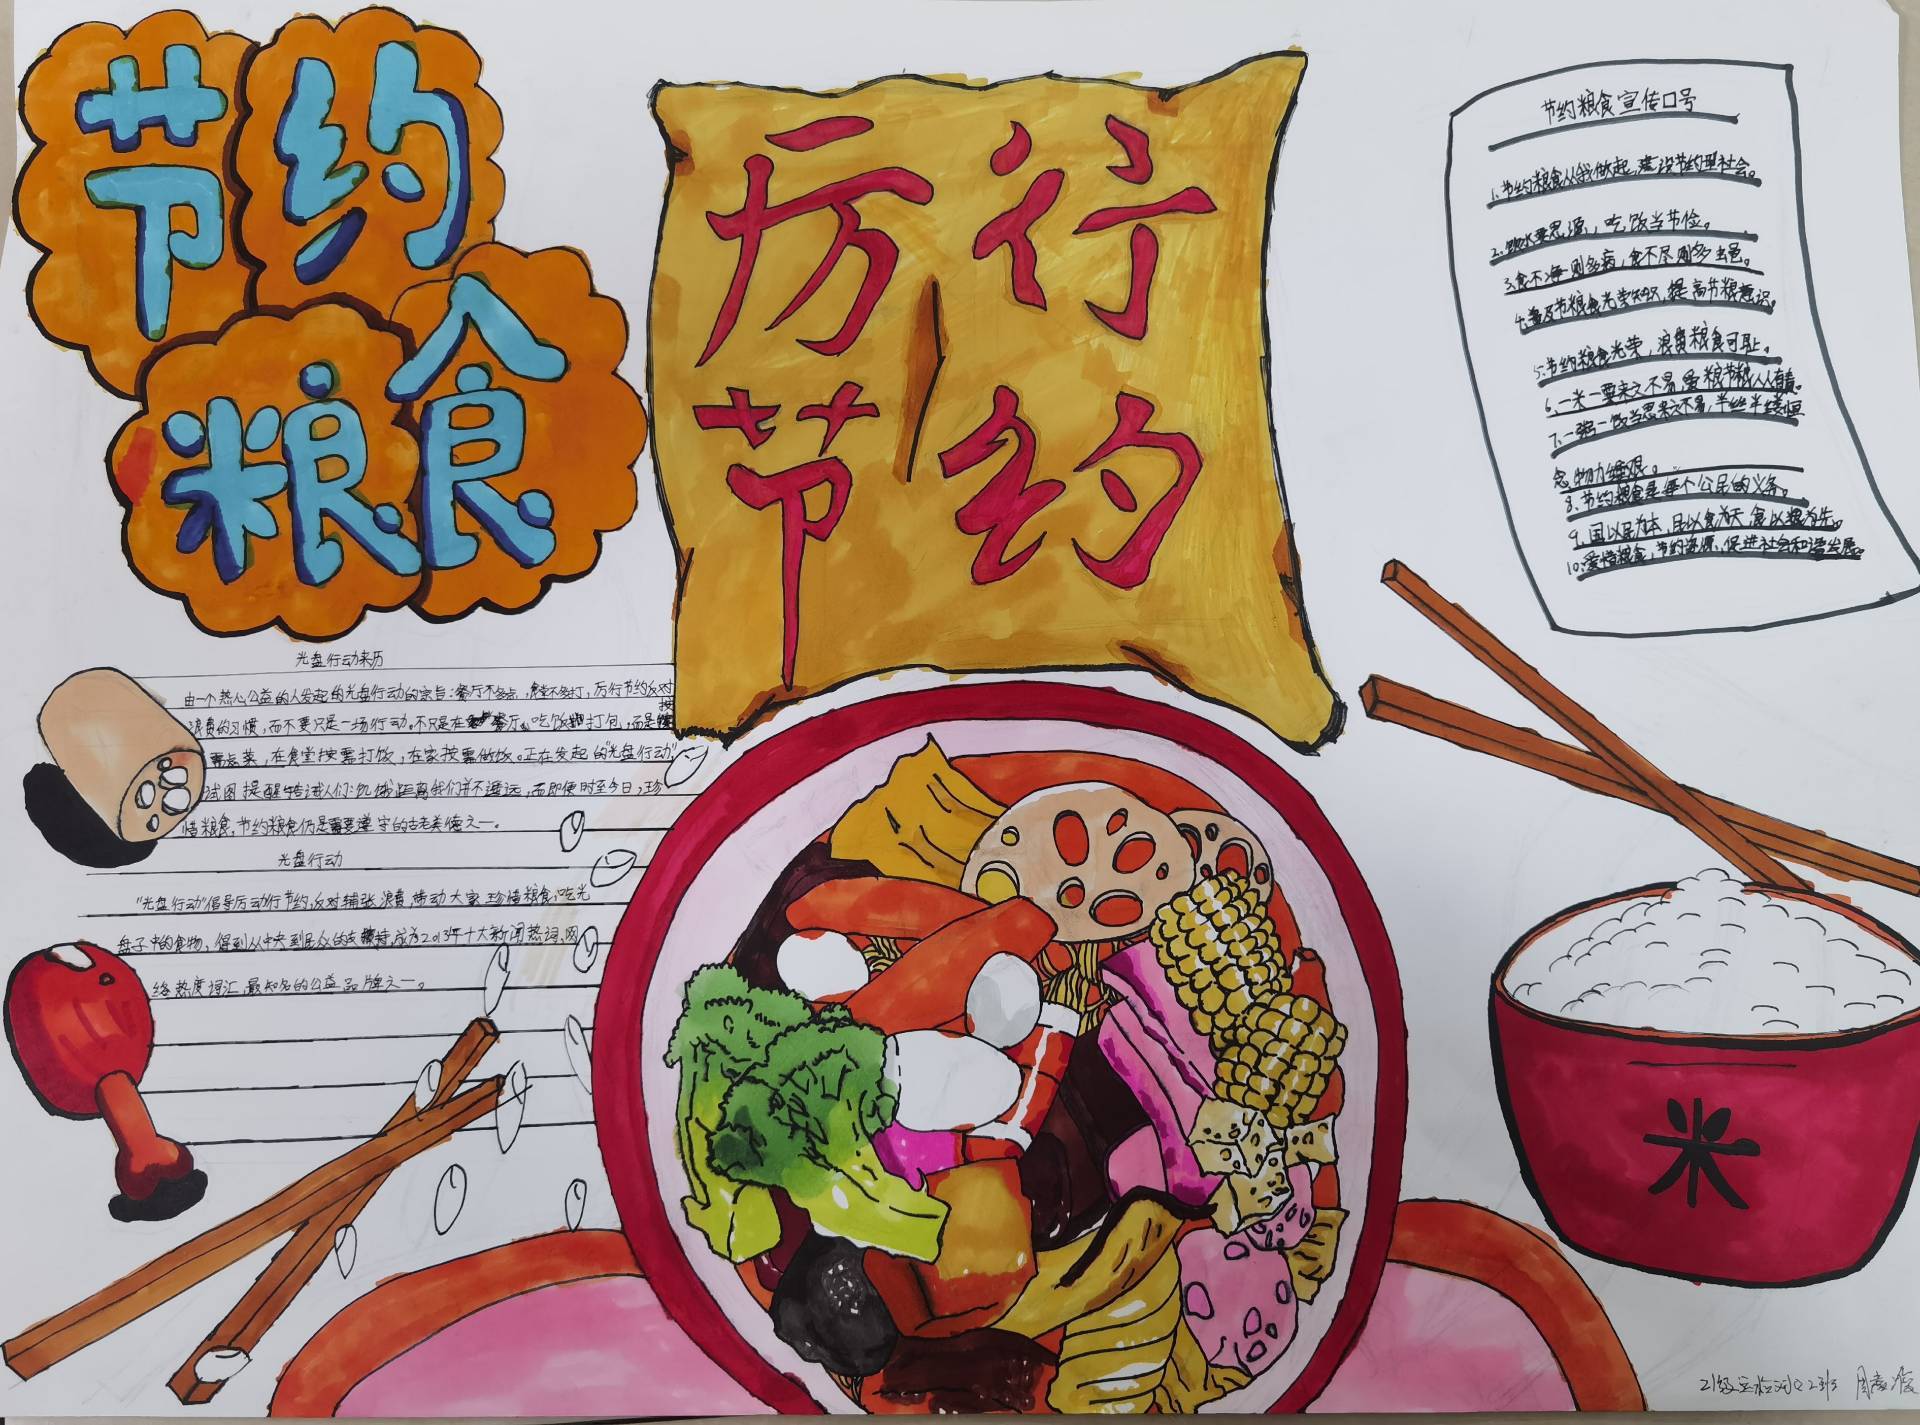 节约
粮食
厉行
节约
节约粮食宣传口号
1.节约粮食从我做起,建设节约型社会。
2.饮水要思源,吃饭当节俭。
3.食不净则多病,食不尽则多
4.普及节粮食光荣知识,提高节粮意识。
5.节约粮食光荣,浪费粮食可耻。
6.一米一粟来之不易,爱粮节粮人人有责。
7.一粥一饭当思来之不易,半丝半缕恒
念物力维艰。
8.节约粮食是每个公民的义务。
9.国以民为本,民以食为天,食以粮为先。
10.爱惜粮食,节约资源,促进社会和谐发展。
光盘行动来历
由一个热心公益的人发起的光盘行动的宗旨:餐厅不多点,食堂不多打,厉行节约反对
浪费的习惯,而不要只是一场行动。不只是在餐厅、吃饭打包,而是按
需点菜,在食堂按需打饭,在家按需做饭。正在发起的"光盘行动",
试图提醒告诫人们:饥饿距离我们并不遥远,而即便时至今日,珍
惜粮食,节约粮食仍是需要遵守的古老美德之一。
光盘行动
"光盘行动"倡导厉动行节约,反对铺张浪费,带动大家珍惜粮食,吃光
盘子中的食物,得到从中央到民众的支持,成为2013年十大新闻热词、网
络热度词汇,最知名的公益品牌之一。
米
21级 2班 周